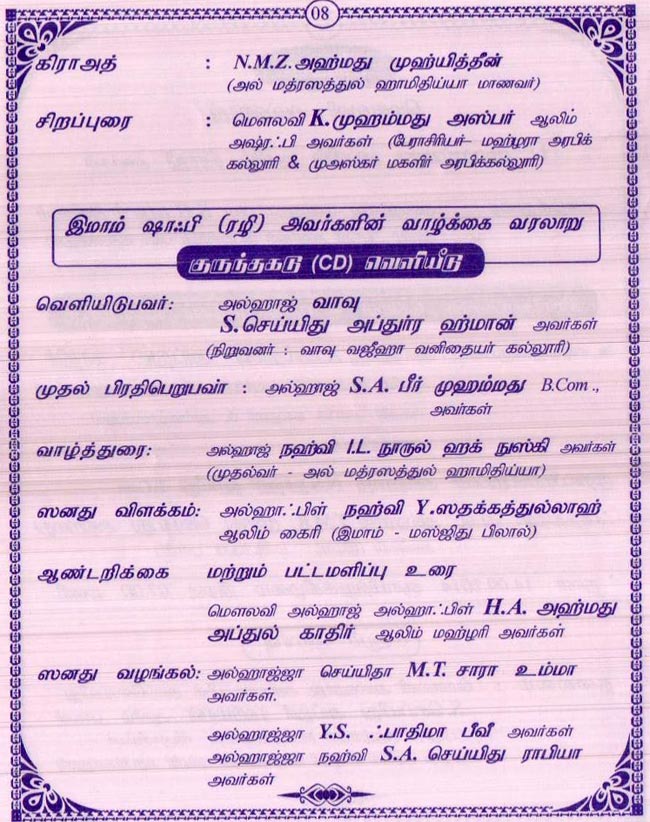 08
கிராஅத் : N.M.Z. அஹ்மது முஹ்யித்தீன்
(அல் மத்ரஸத்துல் ஹாமிதிய்யா மாணவர்)
சிறப்புரை : மௌலவி K.முஹம்மது அஸ்பர் ஆலிம்
அஷ்ரஃபி அவர்கள் (பேராசிரியர்- மஹ்ழரா அரபிக்
கல்லூரி & முஅஸ்கர் மகளிர் அரபிக்கல்லூரி)
இமாம் ஷாஃபி (ரழி) அவர்களின் வாழ்க்கை வரலாறு
குருந்தகடு (CD) வெளியீடு
வெளியிடுபவர்: அல்ஹாஜ் வாவு
S.செய்யிது அப்துர்ர ஹ்மான் அவர்கள்
(நிறுவனர் : வாவு வஜீஹா வனிதையர் கல்லூரி)
முதல் பிரதிபெறுபவர் : அல்ஹாஜ் S.A. பீர் முஹம்மது B.Com.,
அவர்கள்
வாழ்த்துரை: அல்ஹாஜ் நஹ்வி I.L. நூருல் ஹக் நுஸ்கி அவர்கள்
(முதல்வர் - அல் மத்ரஸத்துல் ஹாமிதிய்யா)
ஸனது விளக்கம்: அல்ஹாஃபிள் நஹ்வி Y.ஸதக்கத்துல்லாஹ்
ஆலிம் கைரி (இமாம் - மஸ்ஜிது பிலால்)
ஆண்டறிக்கை மற்றும் பட்டமளிப்பு உரை
மௌலவி அல்ஹாஜ் அல்ஹாஃபிள் H.A. அஹ்மது
அப்துல் காதிர் ஆலிம் மஹ்ழரி அவர்கள்
ஸனது வழங்கல்: அல்ஹாஜ்ஜா செய்யிதா M.T. சாரா உம்மா
அவர்கள்.
அல்ஹாஜ்ஜா Y.S. ஃபாதிமா பீவீ அவர்கள்
அல்ஹாஜ்ஜா நஹ்வி S.A. செய்யிது ராபியா
அவர்கள்